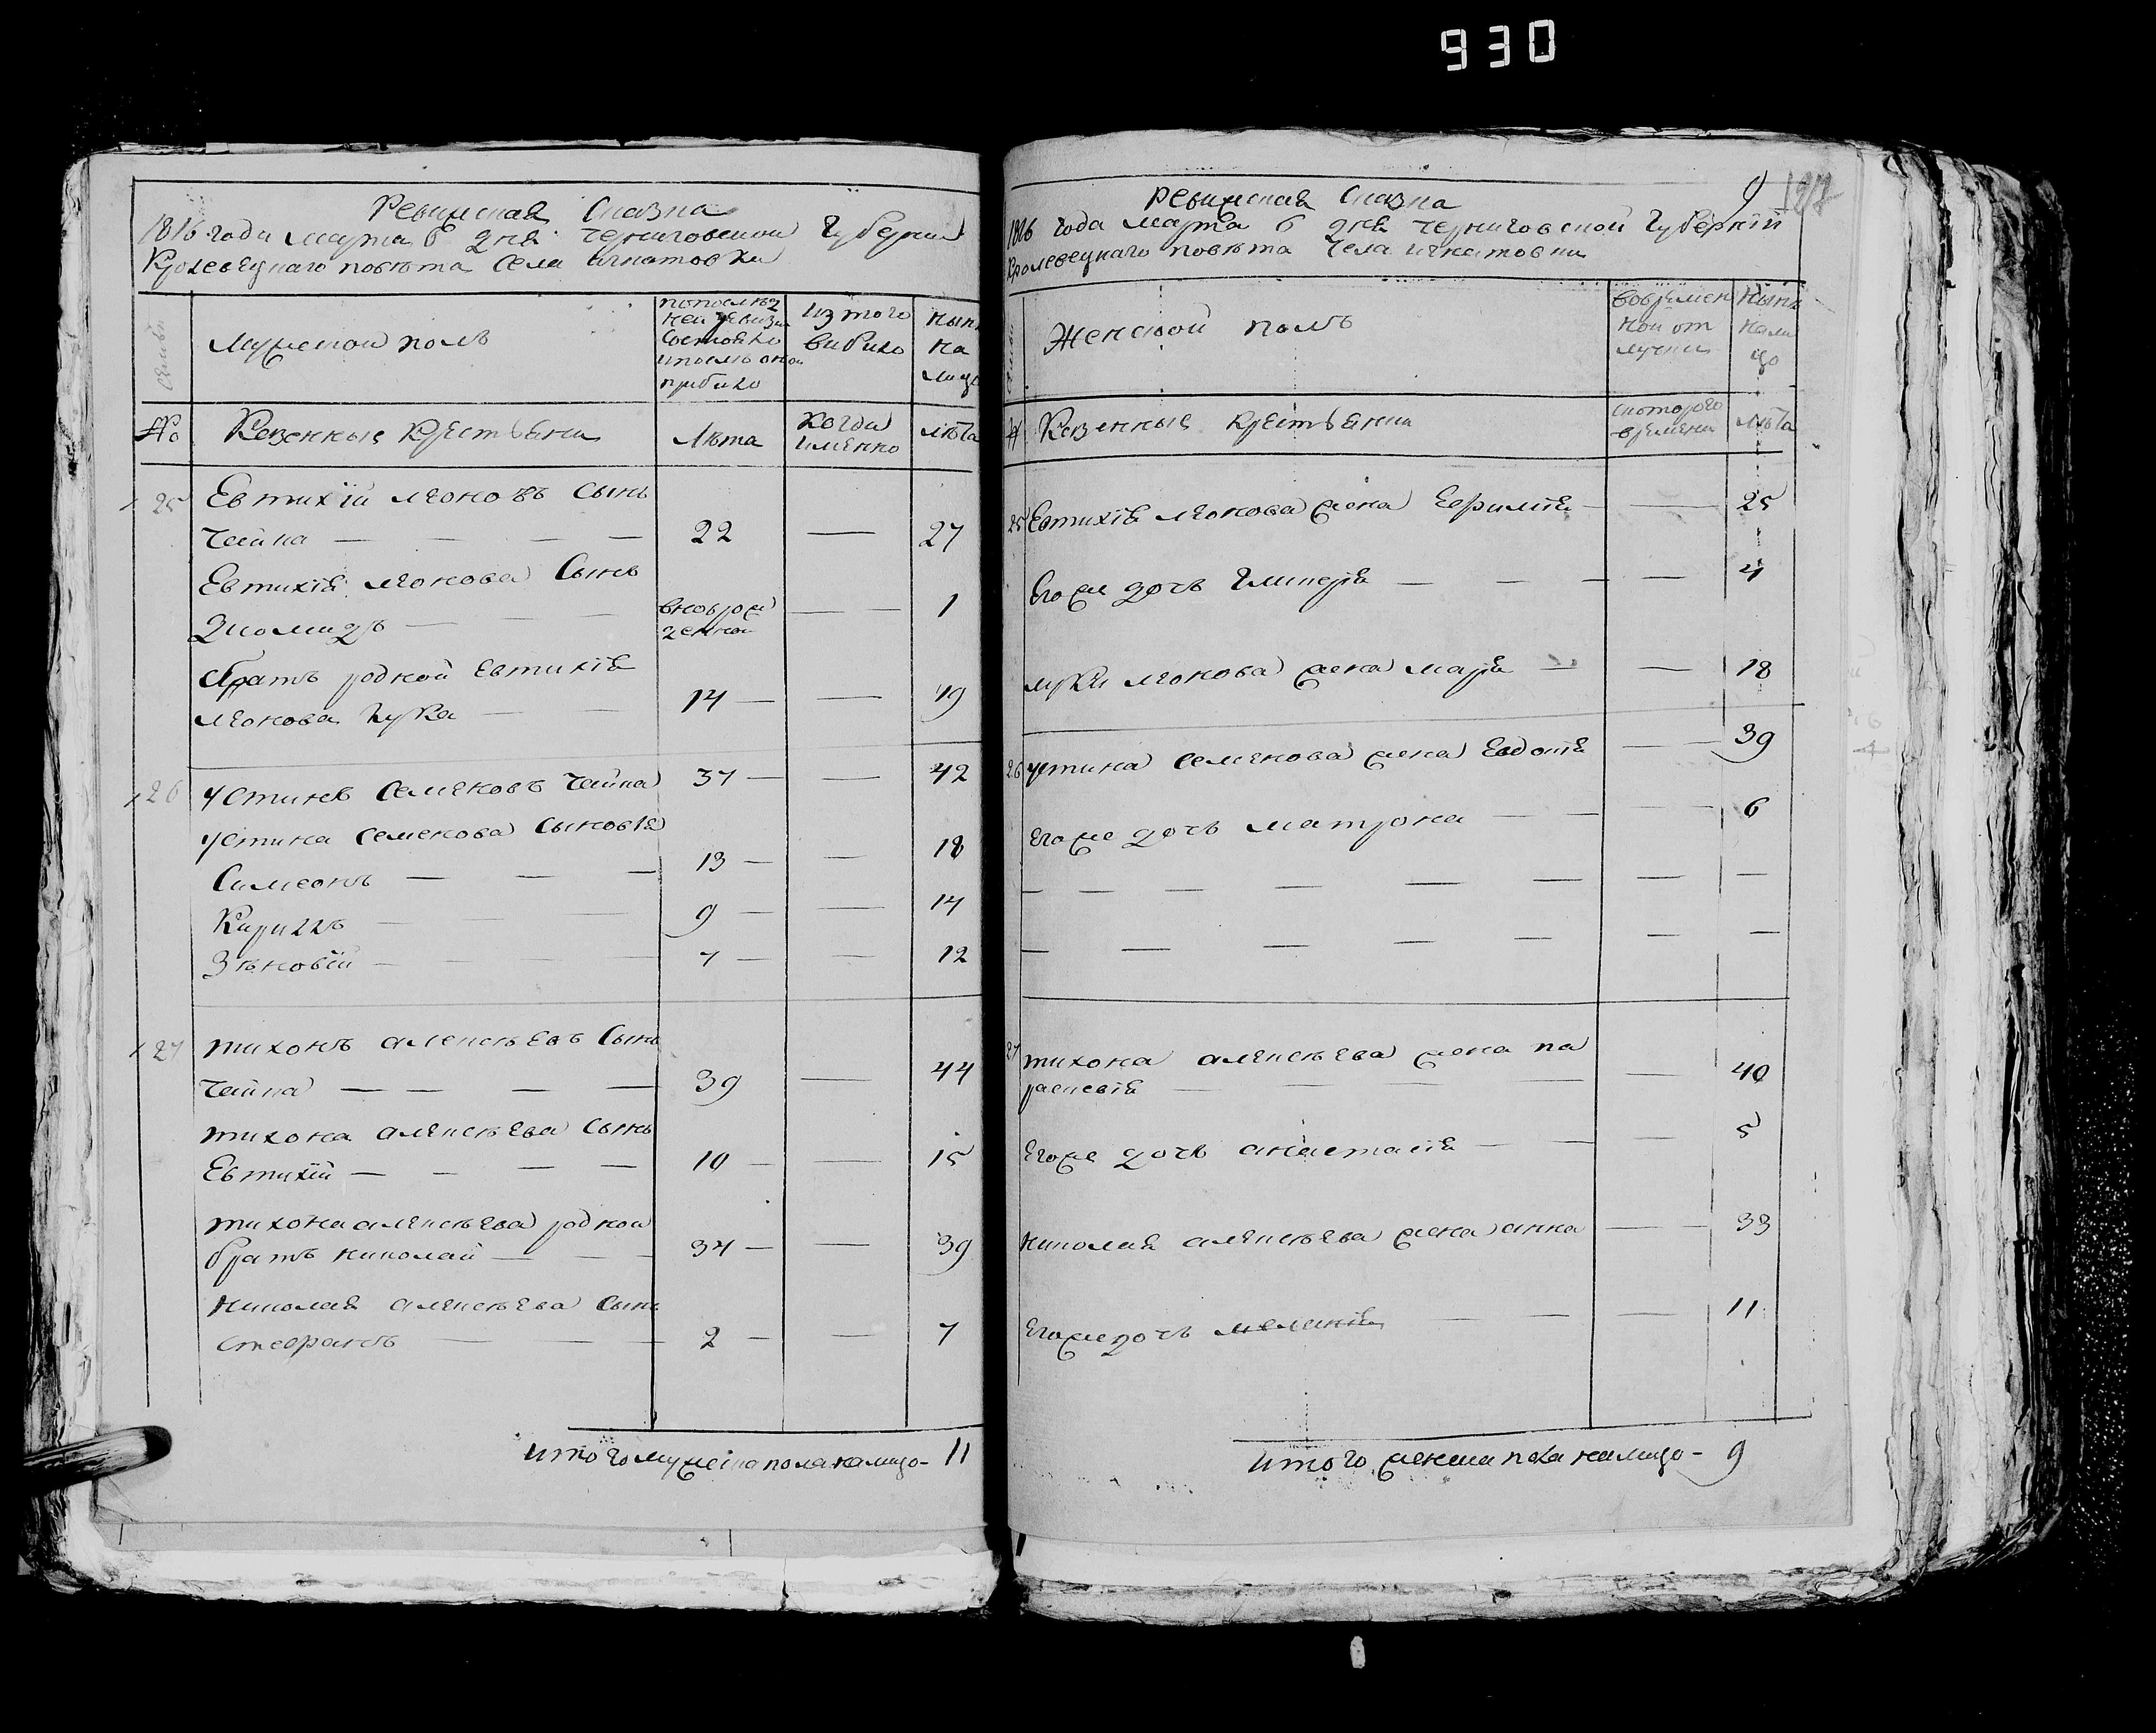 930
Ревижская Сказка
1816 года марта 6 дня Черниговской Губернии
Кролевецкаго повѣта Села Игнатовки
Семьи
Мужеской полъ
По послѣд
ней ревизи
Состояло
и послѣ оной
прибило
Из того
вибило
Нынѣ
на
лицо
№
Казенныя Крестьяни
Лѣта
Когда
имянно
Лѣта
25
Евтихій Леоновъ Сынъ
Чайка
22
27
Евтихія Леонова Сынъ
Диомидъ
вновьрож
денной
1
Братъ родной Евтихія
Леонова Лука
14
19
26
Устинъ Семеновъ Чайка
37
42
Устина Семенова Сыновья
Симеонъ
13
18
Кириллъ
9
14
Зѣновій
7
12
27
Тихонъ Алексѣевъ Сынъ
Чайка
39
44
Тихона Алексѣева Сынъ
Евтихій
10
15
Тихона Алексѣева родной
братъ Николай
34
39
Николая Алексѣева Сынъ
Стефанъ
2
7
Итого мужеска пола налицо - 11
9
Ревижская Сказка
1816 года Марта 6 дня Черниговской Губерніи
Кролевецкаго повѣта Села Игнатовки
Женской полъ
Вовремен
ной от
лучки
Нынѣ
нали
цо
№
Казенныя Крестьянки
Скоторого
времени
Лѣта
25
Евтихія Леонова жена Ефимія
25
Его же дочь Гликерія
4
Луки Леонова жена Марія
18
26
Устина Семенова жена Евдокія
39
Его же дочь Матрона
6
27
Тихона Алексѣева жена Па
раскевія
40
Его же дочь Анастасія
5
Николая Алексѣева жена Анна
33
Его же дочь Меланія
11
Итого женска пола налицо - 9